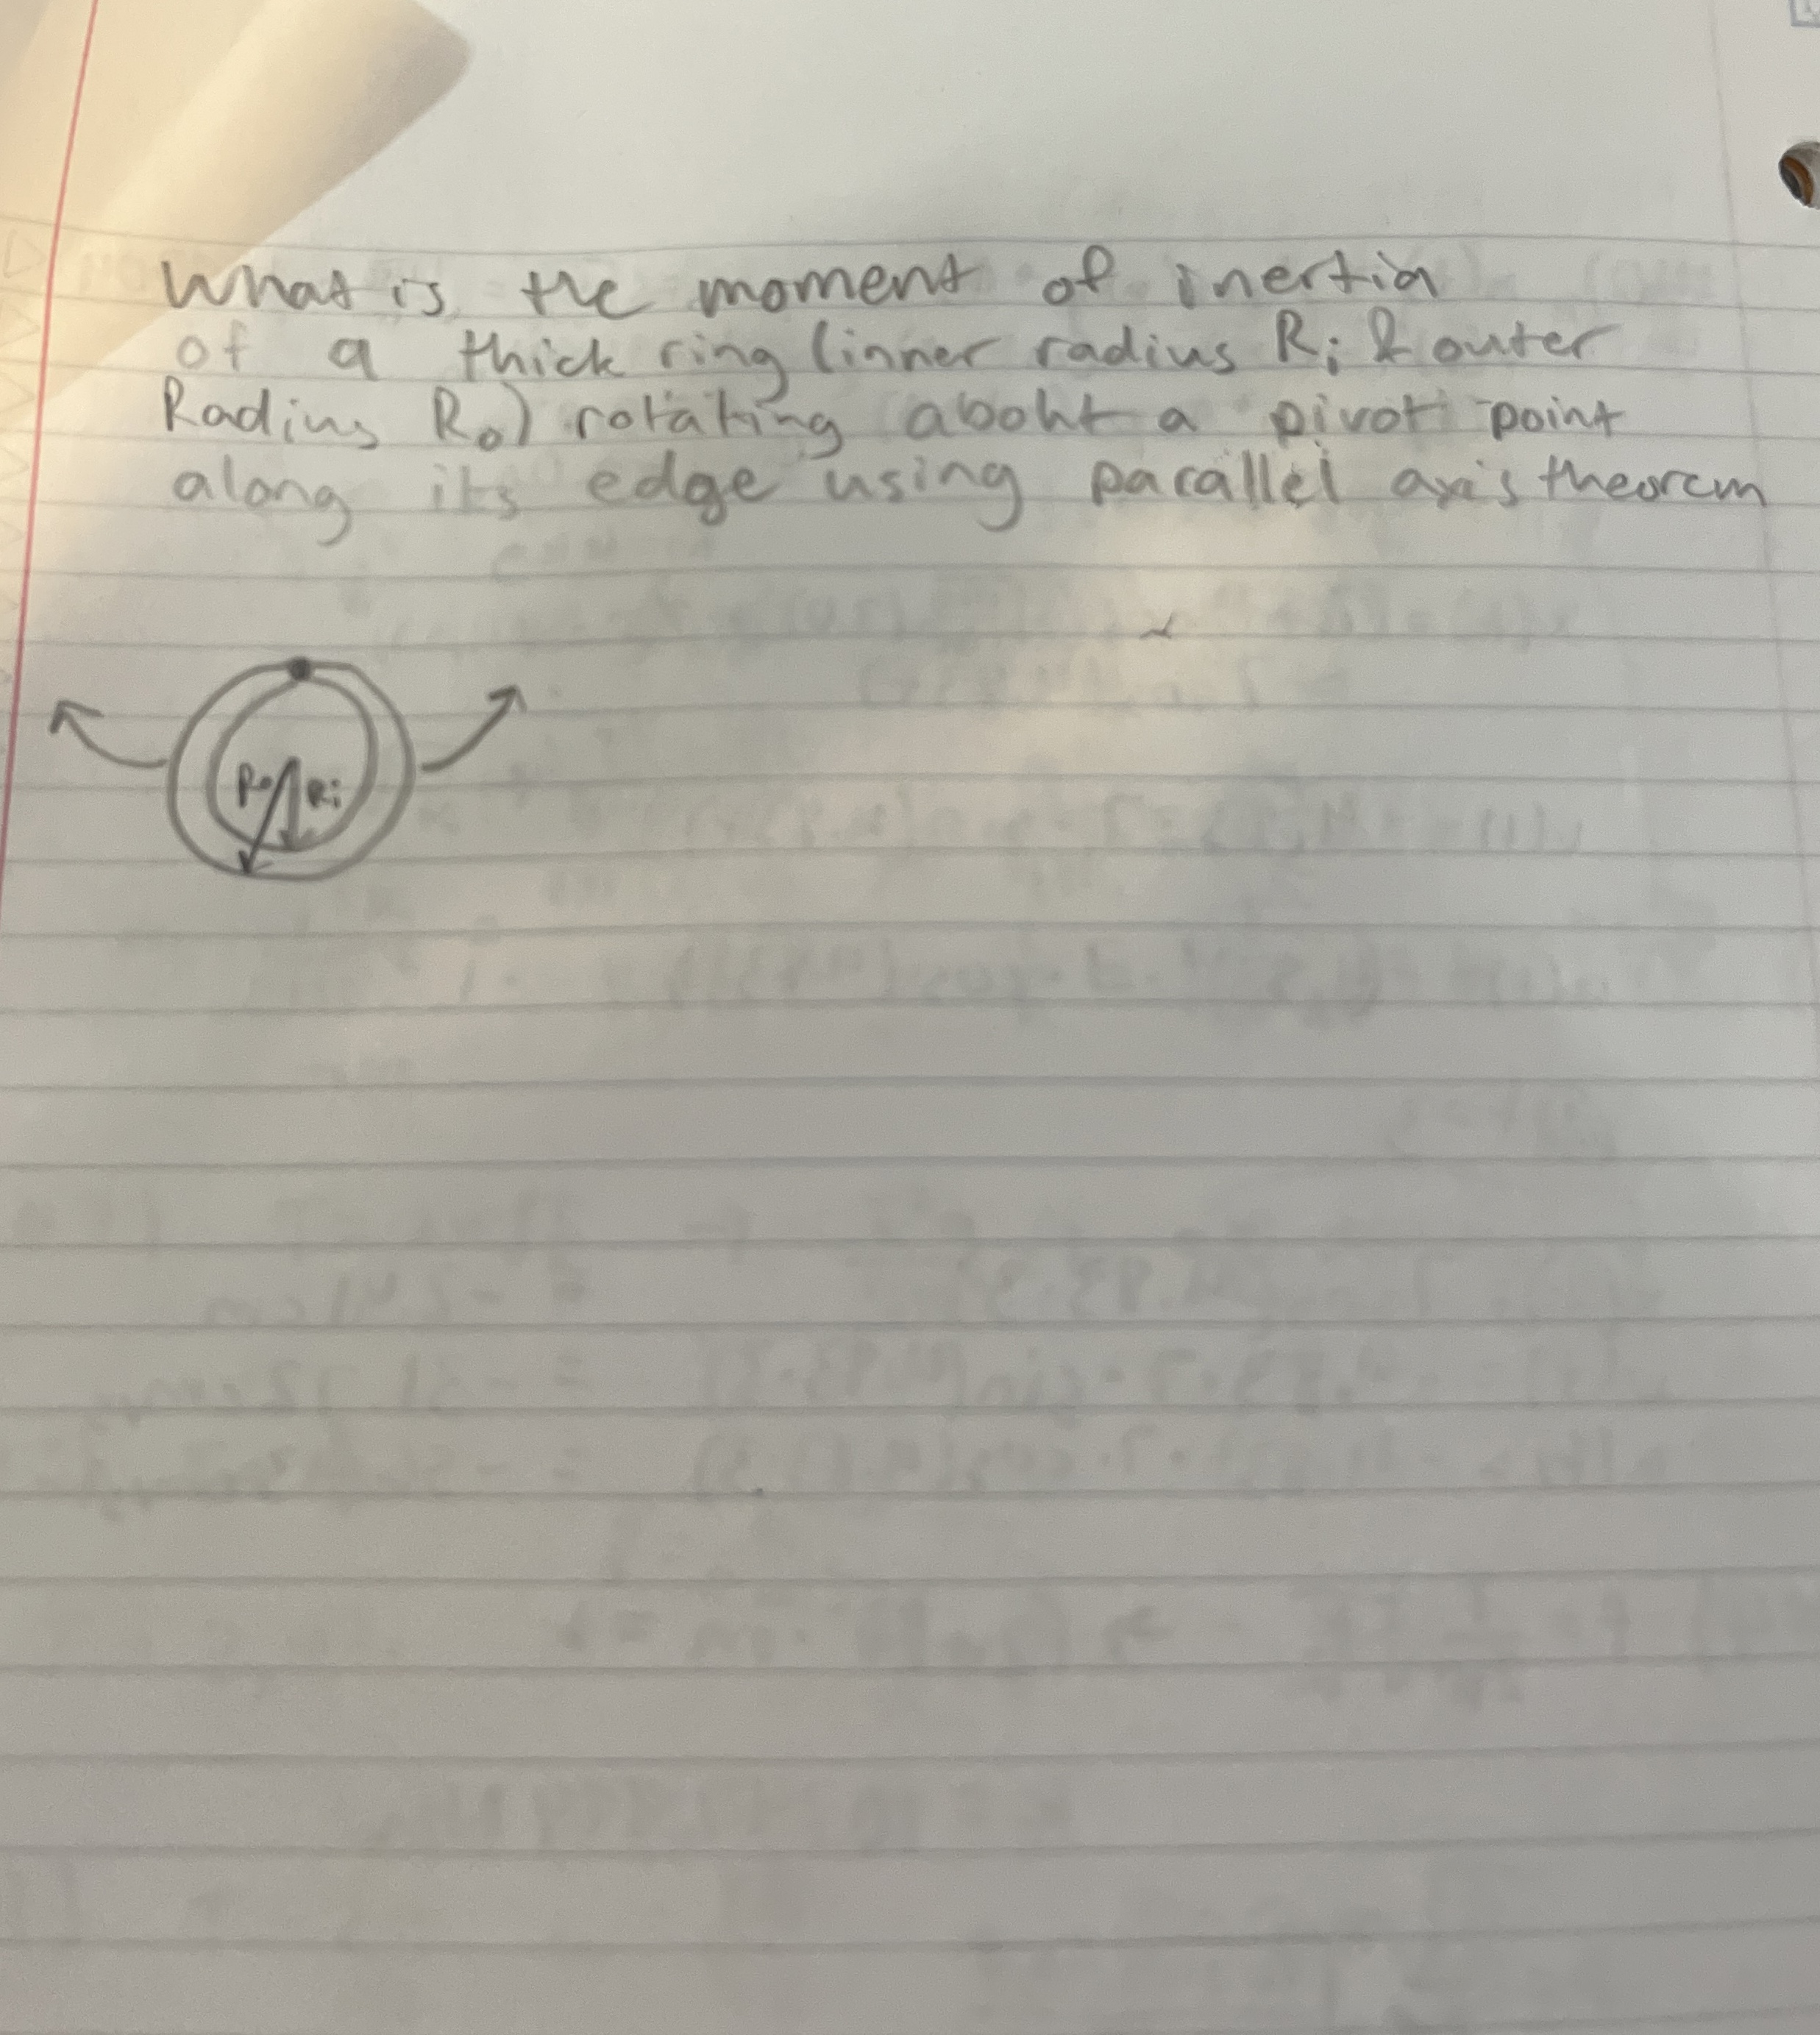 What is the moment of inertia
of a thick ring (inner radius Ri & outer
Radius Ro) rotating about a pivot point
along its edge using parallel axis theorem
Ro Ri